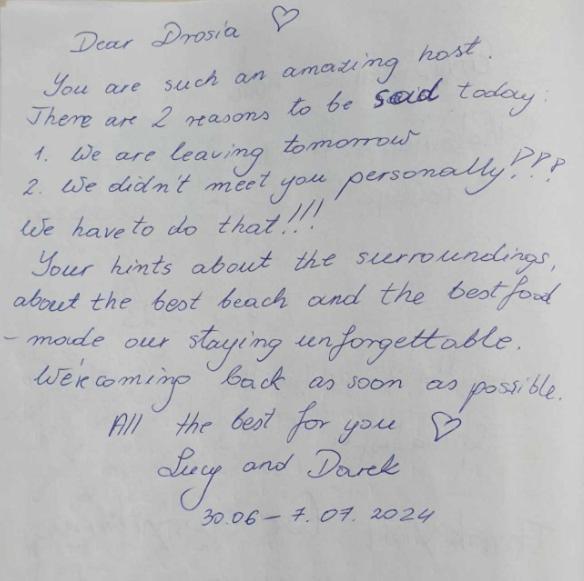 Dear Drosia ♡
You are such an amazing host.
There are 2 reasons to be sad today:
1. We are leaving tomorrow
2. We didn't meet you personally???
We have to do that!!!
Your hints about the surroundings,
about the best beach and the best food
- made our staying unforgettable.
We're coming back as soon as possible.
All the best for you ♡
Lucy and Darek
30.06 – 7.07.2024